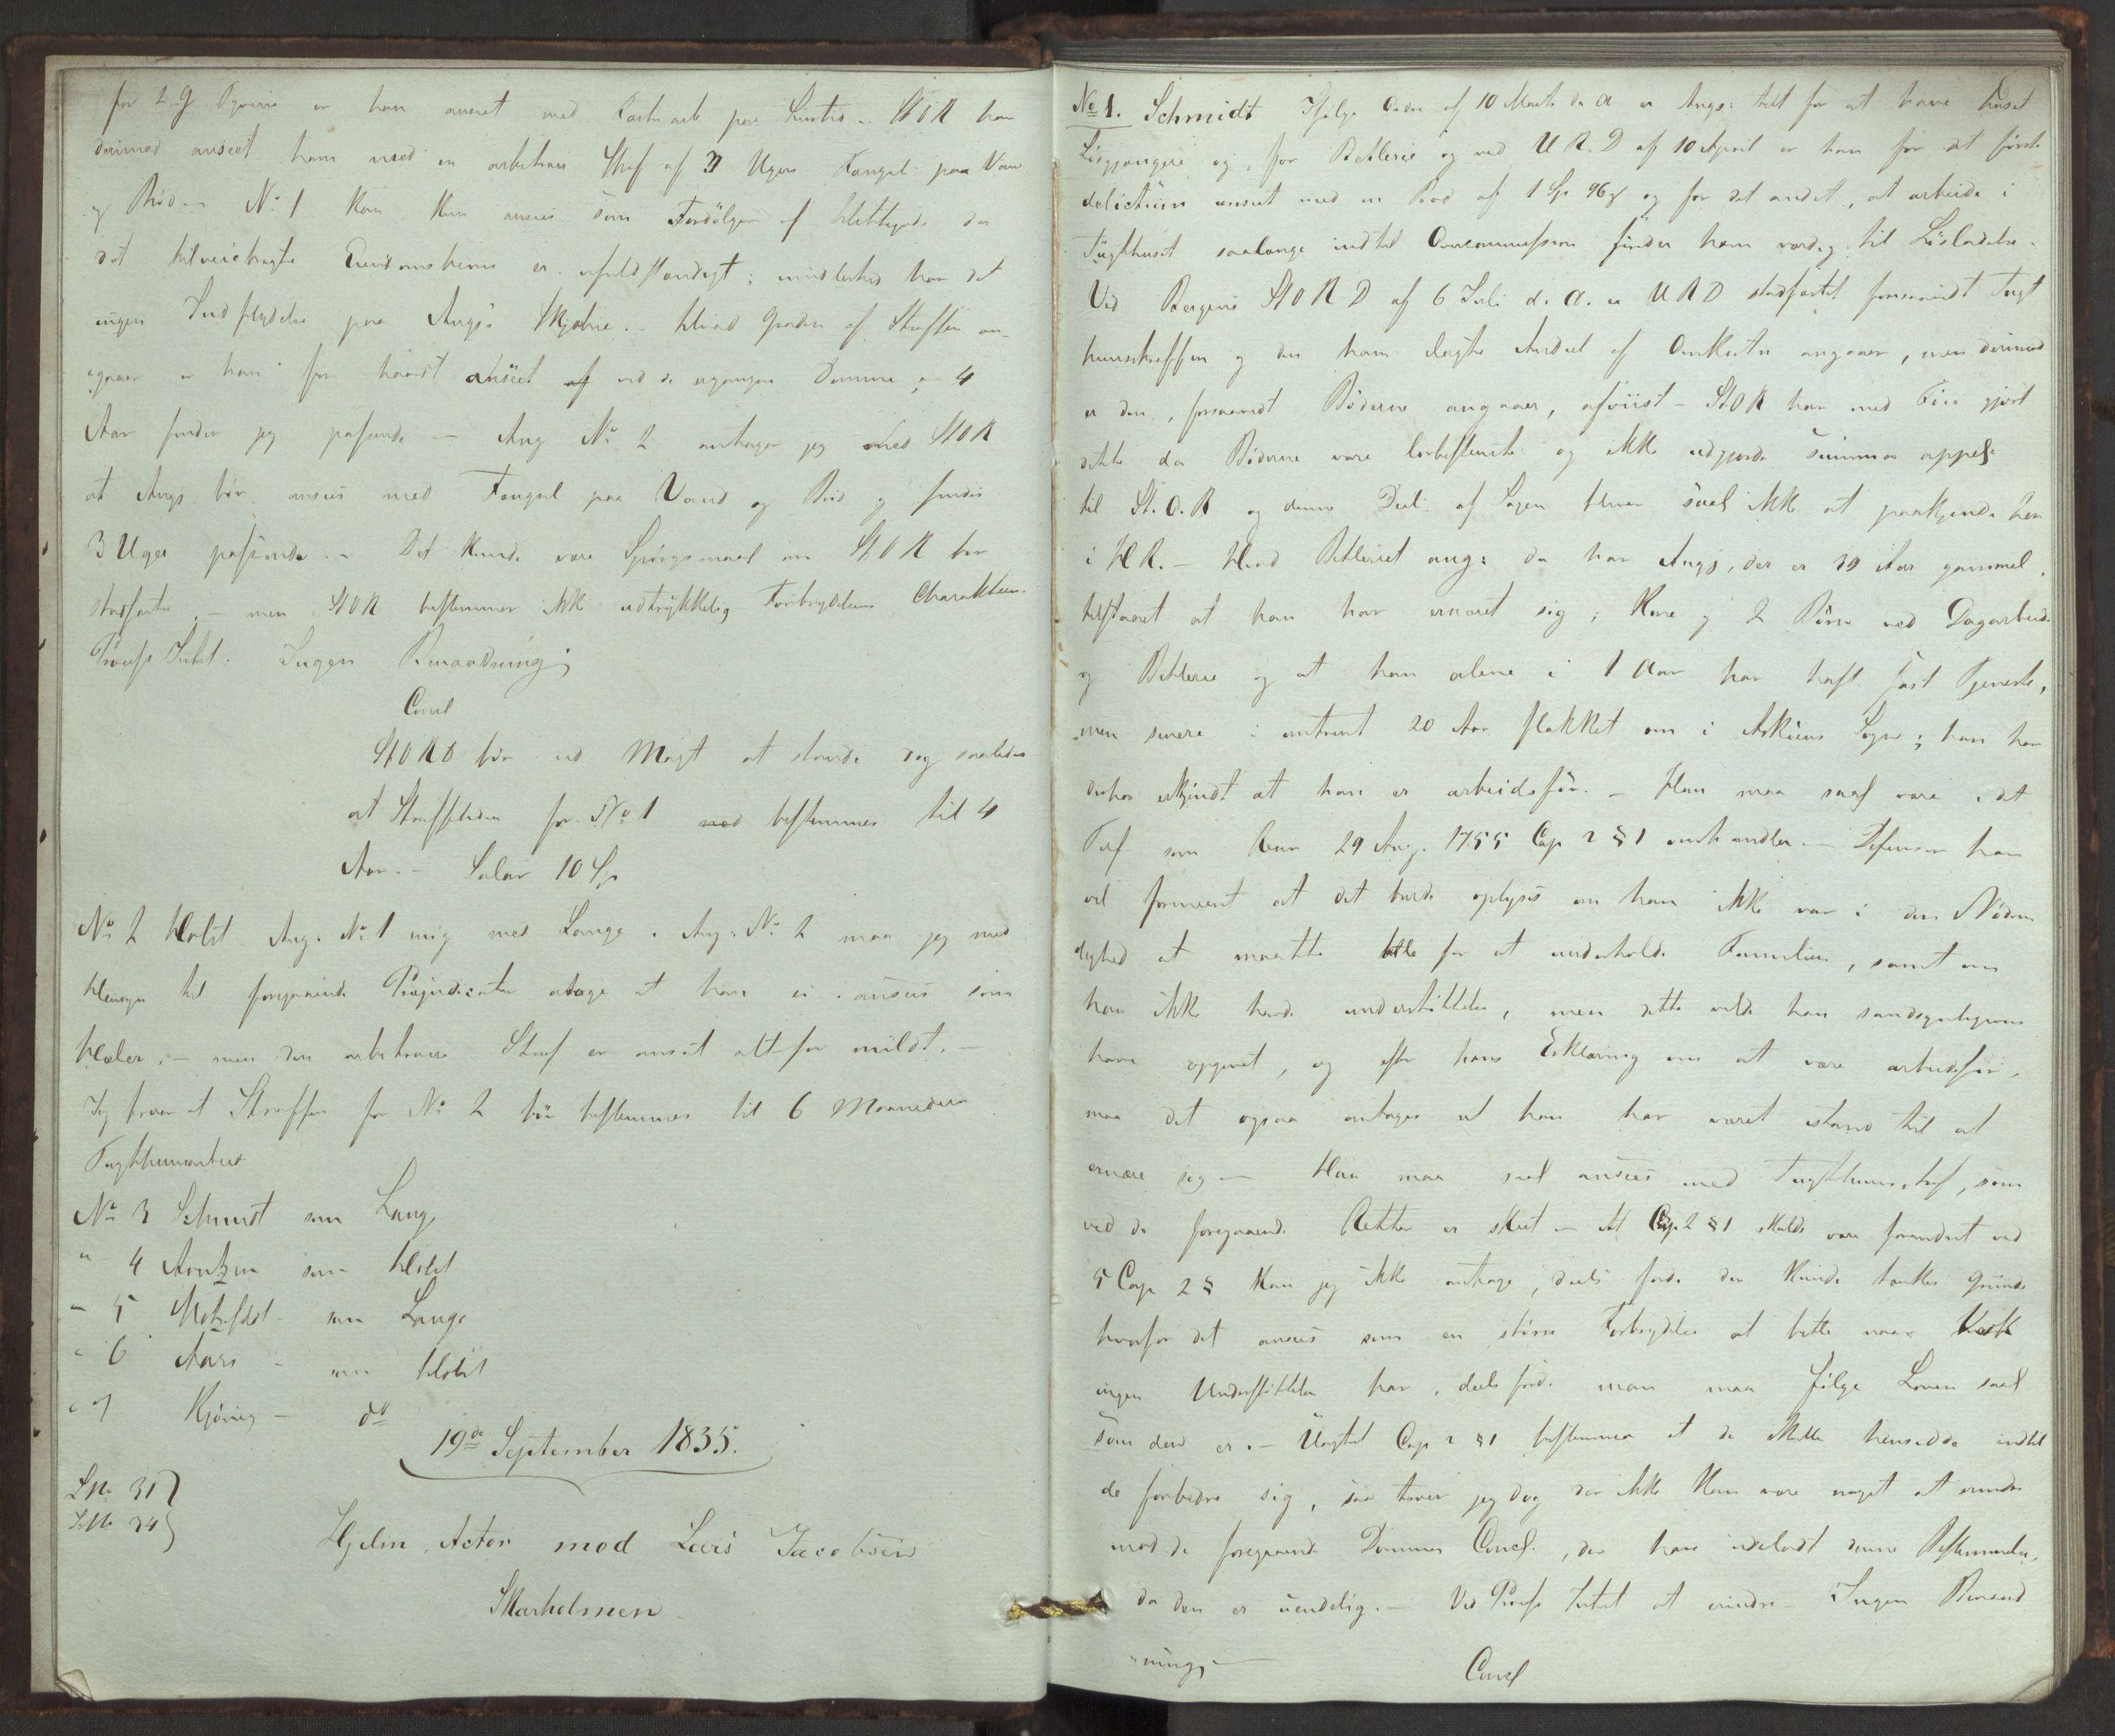 for 2 G Tyverie er han anseet med Fæstn arb paa Livstid - StOR har
derimod anseet ham med en arbitrair Straf af 3 Ugers Fængsel paa Vand
og Brød - No 1 kan kun ansees som Fordølger af  da
det tilveiebragte  er ufuldstændigt; imidlertid har det
ingen Indflydelse paa Angs Skjebne. - Hvad Graden af Straffen an-
"gaaer er han for haardt anseet af ved de ergangne Domme, - 4
Aar finder jeg passende - Ang No 2 antager jeg med StOR
at Angs bør ansees med Fængsel paa Vand og Brød og findes
3 Uger passende. - Det kunde være Spørgsmaal om StOR bør
stadfæstes, - men StOR bestemmer ikke udtrykkelig Forbrydelsens Charakteer -
Process Intet. Ingen Benaadning;
Concl
StORD bør ved Magt at stande dog saaledes
at Straffetiden for No 1 med bestemmes til 4
Aar. - Salair 10 Sp
No 2 Holst Ang: No 1 enig med Lange. Ang: No 2 maa jeg med
Hensyn til foregaaende Præjudicater antage at han ei ansees som
Hæler, - men den arbitraire Straf er ansat alt for mildt. -
Jeg troer at Straffen for No 2 bør bestemmes til 6 Maaneders
Tugthuusarbeid
No 3 Schmidt som Lange
" 4 Arntzen som Holst
- 5 Motzfeldt som Lange
" 6 Aars - som Holst
" 7 Kjönig - do
19de September 1835.
LNo 31
INo 34
Hjelm, Actor mod Lars Jacobsen
Skarholmen
No 1. Schmidt Ifølge Ordre af 10 Marts d. A er Angs: tilt for at have huset
Løsgjængere og for Betlerie og ved U R. D af 10 April er han for det første
delictum anseet med en Bod af 1 Sp 96 s og for det andet, at arbeide i
Tugthuset saalænge indtil Overcommissionen finder ham værdig til Løsladelse.
Ved Bergens StORD af 6 Juli d. A. er URD stadfæstet forsaavidt Tugt
huusstraffen og den ham ilagte Andeel af Omkostn angaaer, men derimod
er den, forsaavidt Bøderne angaaer, afviist - StOR har med Føie gjort
dette da Bøderne vare lovbestemte og ikke udgjorde summa appel.
til St.O.R og denne Deel af Sagen bliver saal ikke at paakjende her
i HR. - Hvad Betleriet ang: da har Angs, der er 39 Aar gammel,
tilstaaet at han har ernæret sig, Kone og 2 Børn ved Dagarbeide
og Betlerie og at han alene i 1 Aar har havt fast Tjeneste,
men senere i omtrent 20 Aar flakket om i Askøens Sogn; han har
derhos erkjendt at han er arbeidsfør. - Han maa saal være i det
Tilf som Anor 29 Aug. 1755 Cap 2 § 1 omhandler. - Defensor har
vel formeent at det burde oplyses om han ikke var i den Nødven
dighed at maatte betle for at underholde Familien, samt om
han ikke havde understøttelse, men dette vilde han sandsynligviis
have opgivet, og efter hans Erklæring om at være arbeidsfør,
maa det ogsaa antages at han har været istand til at
ernære sig - Han maa saal ansees med Tugthuusstraf, som
ved de foregaaende Retter er skeet - At Cap. 2 § 1 skulde være forandret ved
5 Cap 2 § kan jeg ikke antage, deels fordi der kunde tænkes Grunde
hvorfor det ansees som en større Forbrydelse at betle naar
ingen Understøttelse har, deels fordi man maa følge Loven saal
som den er. - Uagtet Cap 2 § 1 bestemmer at de skulle hensidde indtil
de forbedre sig, saa troer jeg dog der ikke kan være noget at erindre
mod de foregaaende Dommes Concl., der have udeladt denne Bestemmelse,
da den er uendelig. - Ved Process Intet at erindre - Ingen Benaad
"ning, -
Concl